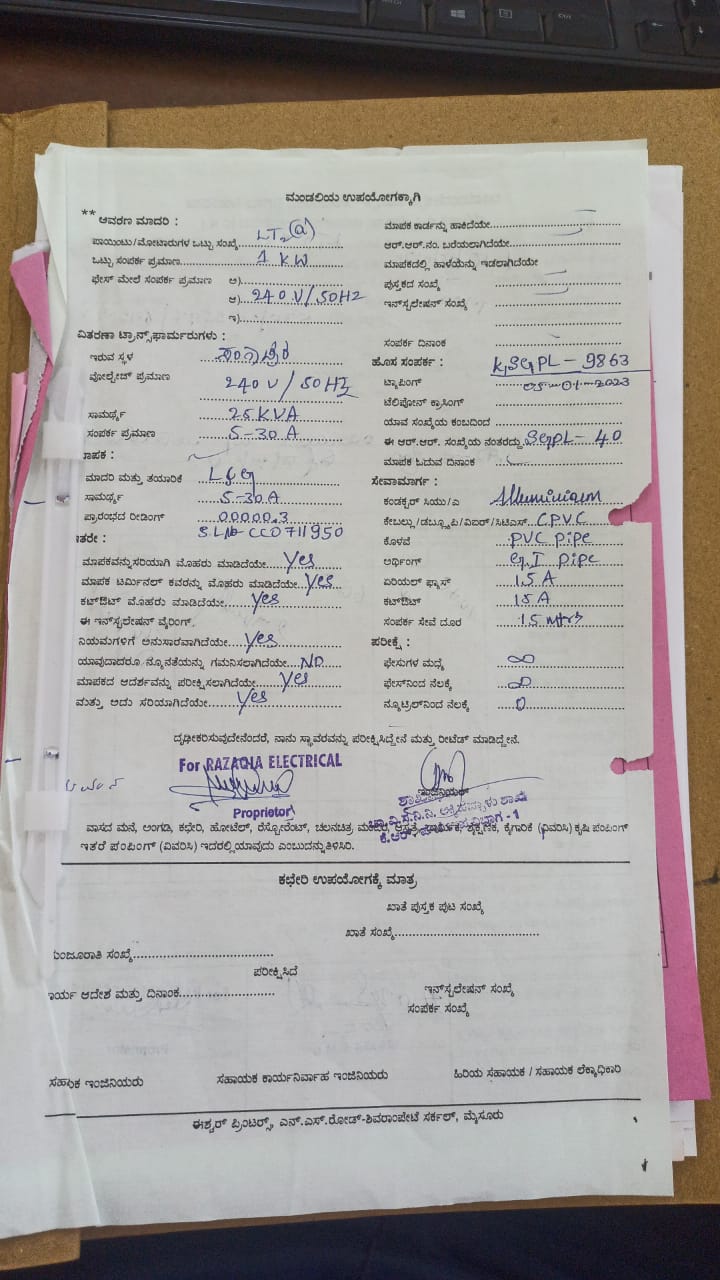 ಮಂಡಲಿಯ ಉಪಯೋಗಕ್ಕಾಗಿ
** ಆವರಣ ಮಾದರಿ :
ಪಾಯಿಂಟು/ಮೋಟಾರುಗಳ ಒಟ್ಟು ಸಂಖ್ಯೆ LT2(a)
ಒಟ್ಟು ಸಂಪರ್ಕ ಪ್ರಮಾಣ 1 KW
ಫೇಸ್ ಮೇಲೆ ಸಂಪರ್ಕ ಪ್ರಮಾಣ ಅ)
ಆ) 240 V/50HZ
ಇ)
ವಿತರಣಾ ಟ್ರಾನ್ಸ್‌ಫಾರ್ಮರುಗಳು :
ಇರುವ ಸ್ಥಳ
ವೋಲ್ಟೇಜ್ ಪ್ರಮಾಣ 240 V/50HZ
ಸಾಮರ್ಥ್ಯ 25 KVA
ಸಂಪರ್ಕ ಪ್ರಮಾಣ 5-30 A
ಮಾಪಕ :
ಮಾದರಿ ಮತ್ತು ತಯಾರಿಕೆ L&G
ಸಾಮರ್ಥ್ಯ 5-30A
ಪ್ರಾರಂಭದ ರೀಡಿಂಗ್ 00000.3
SL No CC0711950
ಇತರೇ :
ಮಾಪಕವನ್ನು ಸರಿಯಾಗಿ ಮೊಹರು ಮಾಡಿದೆಯೇ Yes
ಮಾಪಕ ಟರ್ಮಿನಲ್ ಕವರನ್ನು ಮೊಹರು ಮಾಡಿದೆಯೇ Yes
ಕಟ್‌ಔಟ್ ಮೊಹರು ಮಾಡಿದೆಯೇ Yes
ಈ ಇನ್‌ಸ್ಟಲೇಷನ್ ವೈರಿಂಗ್
ನಿಯಮಗಳಿಗೆ ಅನುಸಾರವಾಗಿದೆಯೇ Yes
ಯಾವುದಾದರೂ ನ್ಯೂನತೆಯನ್ನು ಗಮನಿಸಲಾಗಿದೆಯೇ NO
ಮಾಪಕದ ಆದರ್ಶವನ್ನು ಪರೀಕ್ಷಿಸಲಾಗಿದೆಯೇ Yes
ಮತ್ತು ಅದು ಸರಿಯಾಗಿದೆಯೇ Yes
ಮಾಪಕ ಕಾರ್ಡನ್ನು ಹಾಕಿದೆಯೇ
ಆರ್.ಆರ್.ನಂ. ಬರೆಯಲಾಗಿದೆಯೇ
ಮಾಪಕದಲ್ಲಿ ಹಾಳೆಯನ್ನು ಇಡಲಾಗಿದೆಯೇ
ಪುಸ್ತಕದ ಸಂಖ್ಯೆ
ಇನ್‌ಸ್ಟಲೇಷನ್ ಸಂಖ್ಯೆ
ಸಂಪರ್ಕ ದಿನಾಂಕ
ಹೊಸ ಸಂಪರ್ಕ : KSGPL - 9863
ಟ್ಯಾಪಿಂಗ್ 05-01-2023
ಟೆಲಿಫೋನ್ ಕ್ರಾಸಿಂಗ್
ಯಾವ ಸಂಖ್ಯೆಯ ಕಂಬದಿಂದ
ಈ ಆರ್.ಆರ್. ಸಂಖ್ಯೆಯ ನಂತರದ್ದು SGPL - 40
ಮಾಪಕ ಓದುವ ದಿನಾಂಕ
ಸೇವಾಮಾರ್ಗ :
ಕಂಡಕ್ಟರ್ ಸಿಯು/ಎ Alluminium
ಕೇಬಲ್ಲು/ಡಬ್ಲ್ಯೂಪಿ/ವಿಐಆರ್/ಸಿಟಿಎಸ್ CPVC
ಕೊಳವೆ PVC pipe
ಅರ್ಥಿಂಗ್ G.I pipe
ಏರಿಯಲ್ ಫ್ಯೂಸ್ 15 A
ಕಟ್‌ಔಟ್ 15 A
ಸಂಪರ್ಕ ಸೇವೆ ದೂರ 15 mtrs
ಪರೀಕ್ಷೆ :
ಫೇಸುಗಳ ಮಧ್ಯೆ ∞
ಫೇಸ್‌ನಿಂದ ನೆಲಕ್ಕೆ ∞
ನ್ಯೂಟ್ರಲ್‌ನಿಂದ ನೆಲಕ್ಕೆ 0
ದೃಢೀಕರಿಸುವುದೇನೆಂದರೆ, ನಾನು ಸ್ಥಾವರವನ್ನು ಪರೀಕ್ಷಿಸಿದ್ದೇನೆ ಮತ್ತು ರೀಟೆಡ್ ಮಾಡಿದ್ದೇನೆ.
For RAZAQIA ELECTRICAL
Proprietor
ಇಂಜಿನಿಯರ್
ವಾಸದ ಮನೆ, ಅಂಗಡಿ, ಕಛೇರಿ, ಹೋಟೆಲ್, ರೆಸ್ಟೋರೆಂಟ್, ಚಲನಚಿತ್ರ ಮಂದಿರ, ಆಸ್ಪತ್ರೆ, ಧಾರ್ಮಿಕ, ಶೈಕ್ಷಣಿಕ, ಕೈಗಾರಿಕೆ (ವಿವರಿಸಿ) ಕೃಷಿ ಪಂಪಿಂಗ್
ಇತರೆ ಪಂಪಿಂಗ್ (ವಿವರಿಸಿ) ಇದರಲ್ಲಿ ಯಾವುದು ಎಂಬುದನ್ನು ತಿಳಿಸಿರಿ.
ಕಛೇರಿ ಉಪಯೋಗಕ್ಕೆ ಮಾತ್ರ
ಖಾತೆ ಪುಸ್ತಕ ಪುಟ ಸಂಖ್ಯೆ
ಖಾತೆ ಸಂಖ್ಯೆ
ಮಂಜೂರಾತಿ ಸಂಖ್ಯೆ
ಪರೀಕ್ಷಿಸಿದೆ
ಕಾರ್ಯ ಆದೇಶ ಮತ್ತು ದಿನಾಂಕ
ಇನ್‌ಸ್ಟಲೇಷನ್ ಸಂಖ್ಯೆ
ಸಂಪರ್ಕ ಸಂಖ್ಯೆ
ಸಹಾಯಕ ಇಂಜಿನಿಯರು ಸಹಾಯಕ ಕಾರ್ಯನಿರ್ವಾಹ ಇಂಜಿನಿಯರು ಹಿರಿಯ ಸಹಾಯಕ / ಸಹಾಯಕ ಲೆಕ್ಕಾಧಿಕಾರಿ
ಈಶ್ವರ್ ಪ್ರಿಂಟರ್ಸ್, ಎನ್.ಎಸ್.ರೋಡ್-ಶಿವರಾಂಪೇಟೆ ಸರ್ಕಲ್, ಮೈಸೂರು